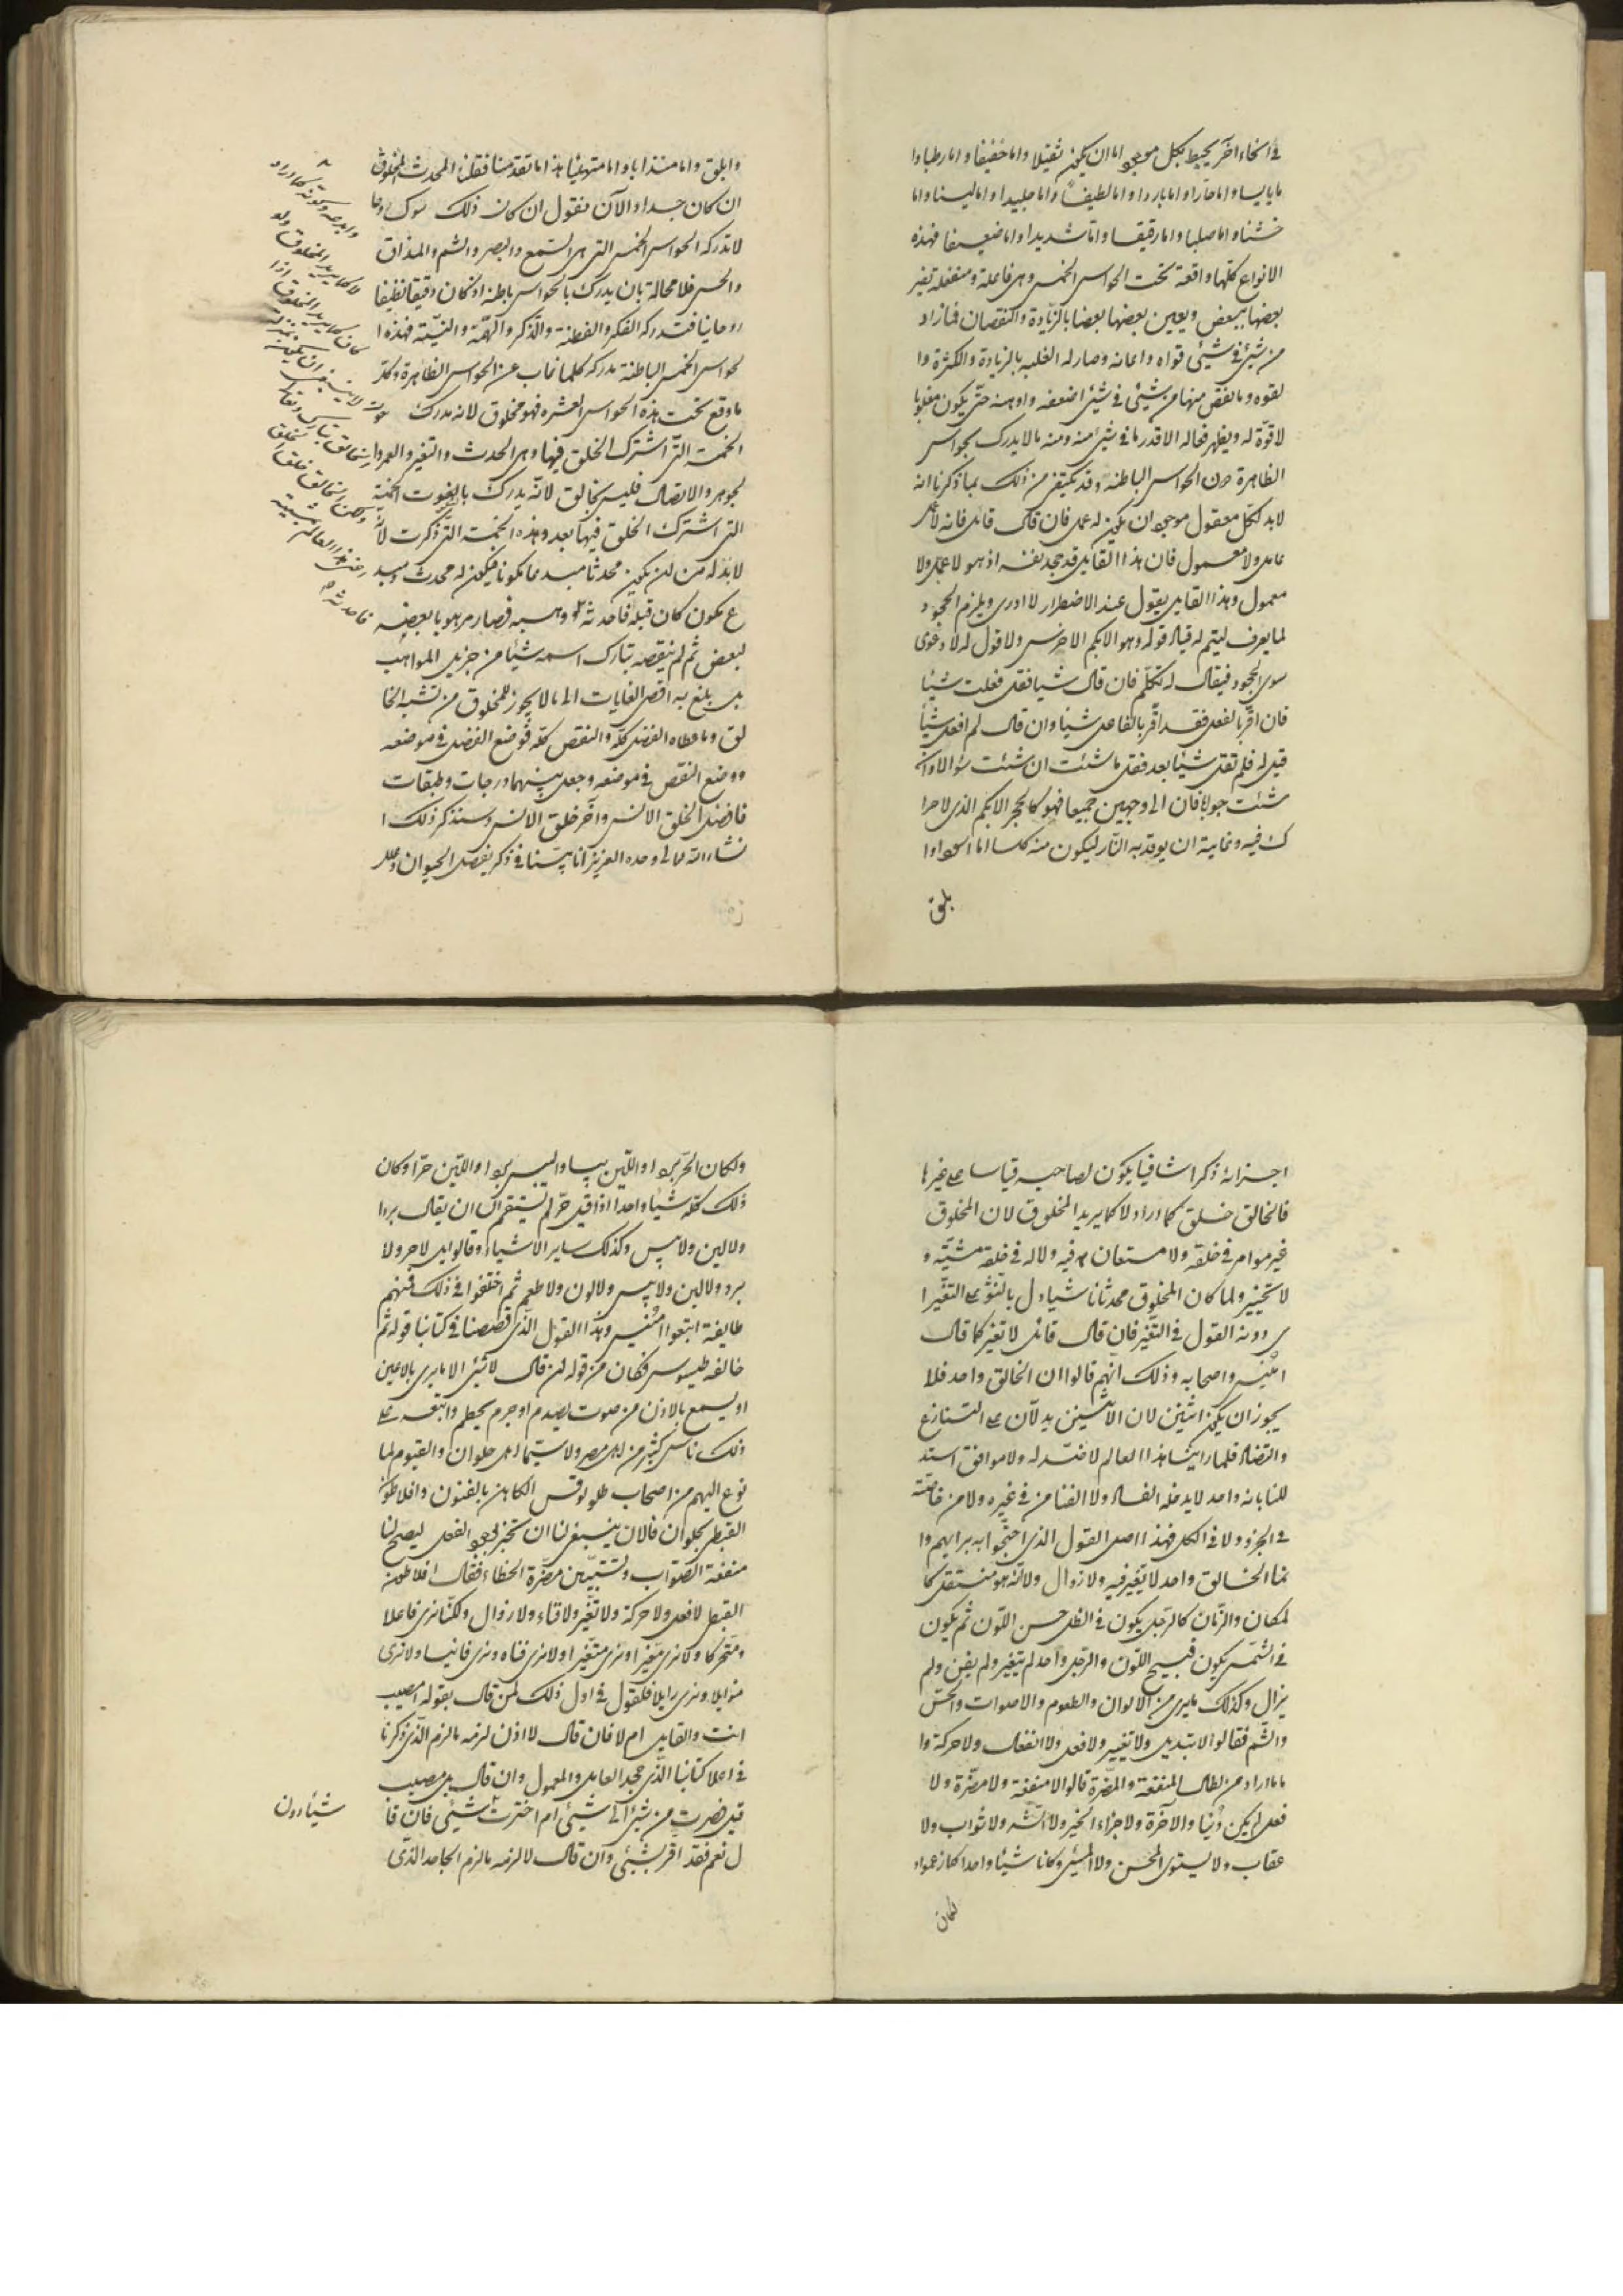 في انحاء اخر يحيط بكل موجود اما ان يكون ثقيلا واما خفيفا واما رطبا وا
ما يابسا واما حارا واما باردا واما لطيفا واما جليدا واما لينا واما
خشنا واما صلبا واما رقيقا واما شديدا واما ضعيفا فهذه
الانواع كلها واقعة تحت الحواس الخمس وهي فاعلة ومنفعلة تغير
بعضها ببعض ويعين بعضها بعضا بالزيادة والنقصان فما زاد
من شيئ في شيئ قواه واعانه وصار له الغلبه بالزيادة والكثرة وا
لقوه وما نقص منها من شيئ في شيئ اضعفه واوهنه حتى يكون مغلوبا
لا قوة له ويظهر فعاله الا قدر ما في شيئ منه ومنه ما لا يدرك بحواس
الظاهرة دون الحواس الباطنه وقد يكتفى من ذلك بما ذكرنا انه
لا بد لكل معقول موجود ان يكون له عمل فان قال قايل فانه لا عمل
عامل ولا معمول فان هذا القايل قد جحد نفسه اذ هو لا عمل ولا
معمول وهذا القايل يقول عند الاضطرار لا ادرى ويلزم الجحود
لما يعرف ليتم له قياد قوله وهو الابكم الاخرس ولا قول له لا دعوى
سوى الجحود فيقال له تكلم فان قال شيا فقل فعلت شيئا
فان اقر بالفعل فقد اقر بالفاعل شيئا وان قال لم افعل شيئا
قيل له فلم تقل شيئا بعد فقل ما شئت ان شئت سؤالا وان
شئت جوابا فان الى وجهين جميعا فهو كالحجر الابكم الذى لا حرا
ك فيه وغايته ان يوقد به النار ليكون منه كلسا اما اسود اوا
بلق
وابلق واما منذابا واما متهيئا هذا ما تقدمنا فقلنا المحدث المخلوق
ان كان جسدا والآن نقول ان كان ذلك سوى روحا
لا تدركه الحواس الخمس التى هي السمع والبصر والشم والمذاق
والحس فلا محالة بان يدرك بالحواس باطنه اذ كان دقيقا لطيفا
روحانيا فتدركه الفكر والفطنة والذكر والهمة والنية فهذه ا
لحواس الخمس الباطنة مدركه كلما غاب عن الحواس الظاهرة وكلـ
ما وقع تحت هذه الحواس العشره فهو مخلوق لانه مدرك
الخمسة التى اشترك الخلق فيها وهي الحدث والتغير والعمر وا
لجوهر والاتصال فليس بخالق لانه يدرك بالنعوت الخمسة
التى اشترك الخلق فيها بعد وهذه الخمسة التى ذكرت لانه
لا بد له من ان يكون محدثا مبدعا مكونا فيكون له محدث ومبد
ع مكون كان قبله فاحدثه ووهب فصار مرهوبا بعضه
لبعض ثم لم ينقصه تبارك اسمه شيئا من جزيل المواهب
بل بلغ به اقصى الغايات الى ما لا يجوز للمخلوق من تشبه الخا
لق وما عطاه الفضل كله والنقص كله فوضع الفضل في موضعه
ووضع النقص في موضعه وجعل بينهما درجات وطبقات
فافضل الخلق الانس واخر خلق الانس وسنذكر ذلك ا
نشاء الله تعالى وحده العزيز انا بينا في ذكر بفصل الحيوان وعلل
اجزائه ذكرا شافيا يكون لصاحبه قياسا على غيرها
فالخالق خلق كما اراد لا كما يريد المخلوق لان المخلوق
غير موامر في خلقه ولا مستعان به فيه ولا له في خلقه مشية و
لا تخيير ولما كان المخلوق محدثا ناشيا دل بالنشو على التغير ا
ى دونه القول في التغير فان قال قائل لا تغير كما قال
امنيس واصحابه وذلك انهم قالوا ان الخالق واحد فلا
يجوز ان يكون اثنين لان الاثنين يدلان على التنازع
والتضاد فلما راينا هذا العالم لا ضد له ولا موافق استد
للنا بانه واحد لا يدخله الفساد ولا الفنا من في غيره ولا من خاصته
في الجزء ولا في الكل فهذا اصل القول الذى احتجوا به برايهم وا
نما الخالق واحد لا تغير فيه ولا زوال ولانه هو منتقل كا
لمكان والزمان كالرجل يكون في الظل حسن اللون ثم يكون
في الشمس يكون قبيح اللون والرجل واحد لم يتغير ولم يفن ولم
يزال وكذلك ما يرى من الالوان والطعوم والاصوات والحس
والشم فقالوا لا تبديل ولا تغيير ولا فعل ولا انفعال ولا حركة وا
ما ما اراد من ابطال المنفعة والمضرة قالوا لا منفعة ولا مضرة ولا
فعل لم يكن دنيا والآخرة ولا جزاء الخير ولا الشر ولا ثواب ولا
عقاب ولا يستوى المحسن ولا المسيئ وكانا شيئا واحدا كما زعموا و
لكان
ولكان الحر بردا واللين يبسا واليبس بردا واللين حرا وكان
ذلك كله شيئا واحدا اذا قيل حر لم يستقم الآن ان يقال بردا
ولا لين ولا يبس وكذلك ساير الاشياء وقالوا بل لا حر ولا
برد ولا لين ولا يبس ولا لون ولا طعم ثم اختلفوا في ذلك فمنهم
طايفة اتبعوا امنيس وهذا القول الذى قصصنا في كتابنا قوله ثم
خالفه طيسوس فكان من قوله ان قال لا شيئ الا ما يرى بالاعين
او يسمع بالاذن من صوت يصدم او جرم يحطم واتبعه على
ذلك ناس كثير من اهل مصر ولا سيما اهل حلوان والفيوم لما
نزع اليهم من اصحاب طولوقس الكاهن بالفنون وافلاطون
القبطى بحلوان فالان ينبغى لنا ان نخبر بوجود الفعل ليصح لنا
منفعة الصواب وتستبين مضرة الخطاء فقال افلاطون
القبطى لا فعل ولا حركة ولا تغير ولا فناء ولا زوال ولكنا نرى فاعلا
ومتحركا ولا نرى تغيرا ونرى متغيرا ولا نرى فناء ونرى فانيا ولا نرى
مزايلا ونرى زايلا فلنقول في اول ذلك لمن قال بقوله امصيب
انت والقايل ام لا فان قال لا اذن لزمه ما لزم الذى ذكرنا
في اعلا كتابنا الذى جحد العامل والمعمول وان قال بل مصيب
قيل فصرت من شيئ الى شيئ ام اخترت شيئى فان قا
ل نعم فقد اقر بشيئ وان قال لا لزمه ما لزم الجاحد الذى
شيئا دون